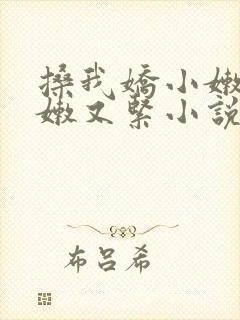 搡我嬌小嫩
嫩又緊小說
布呂希